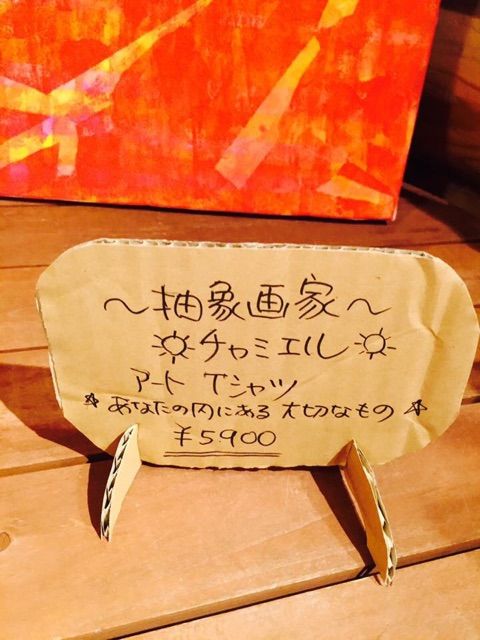 ～抽象画家～
☼チャミエル☼
アート Tシャツ
☆あなたの内にある 大切なもの☆
¥5900